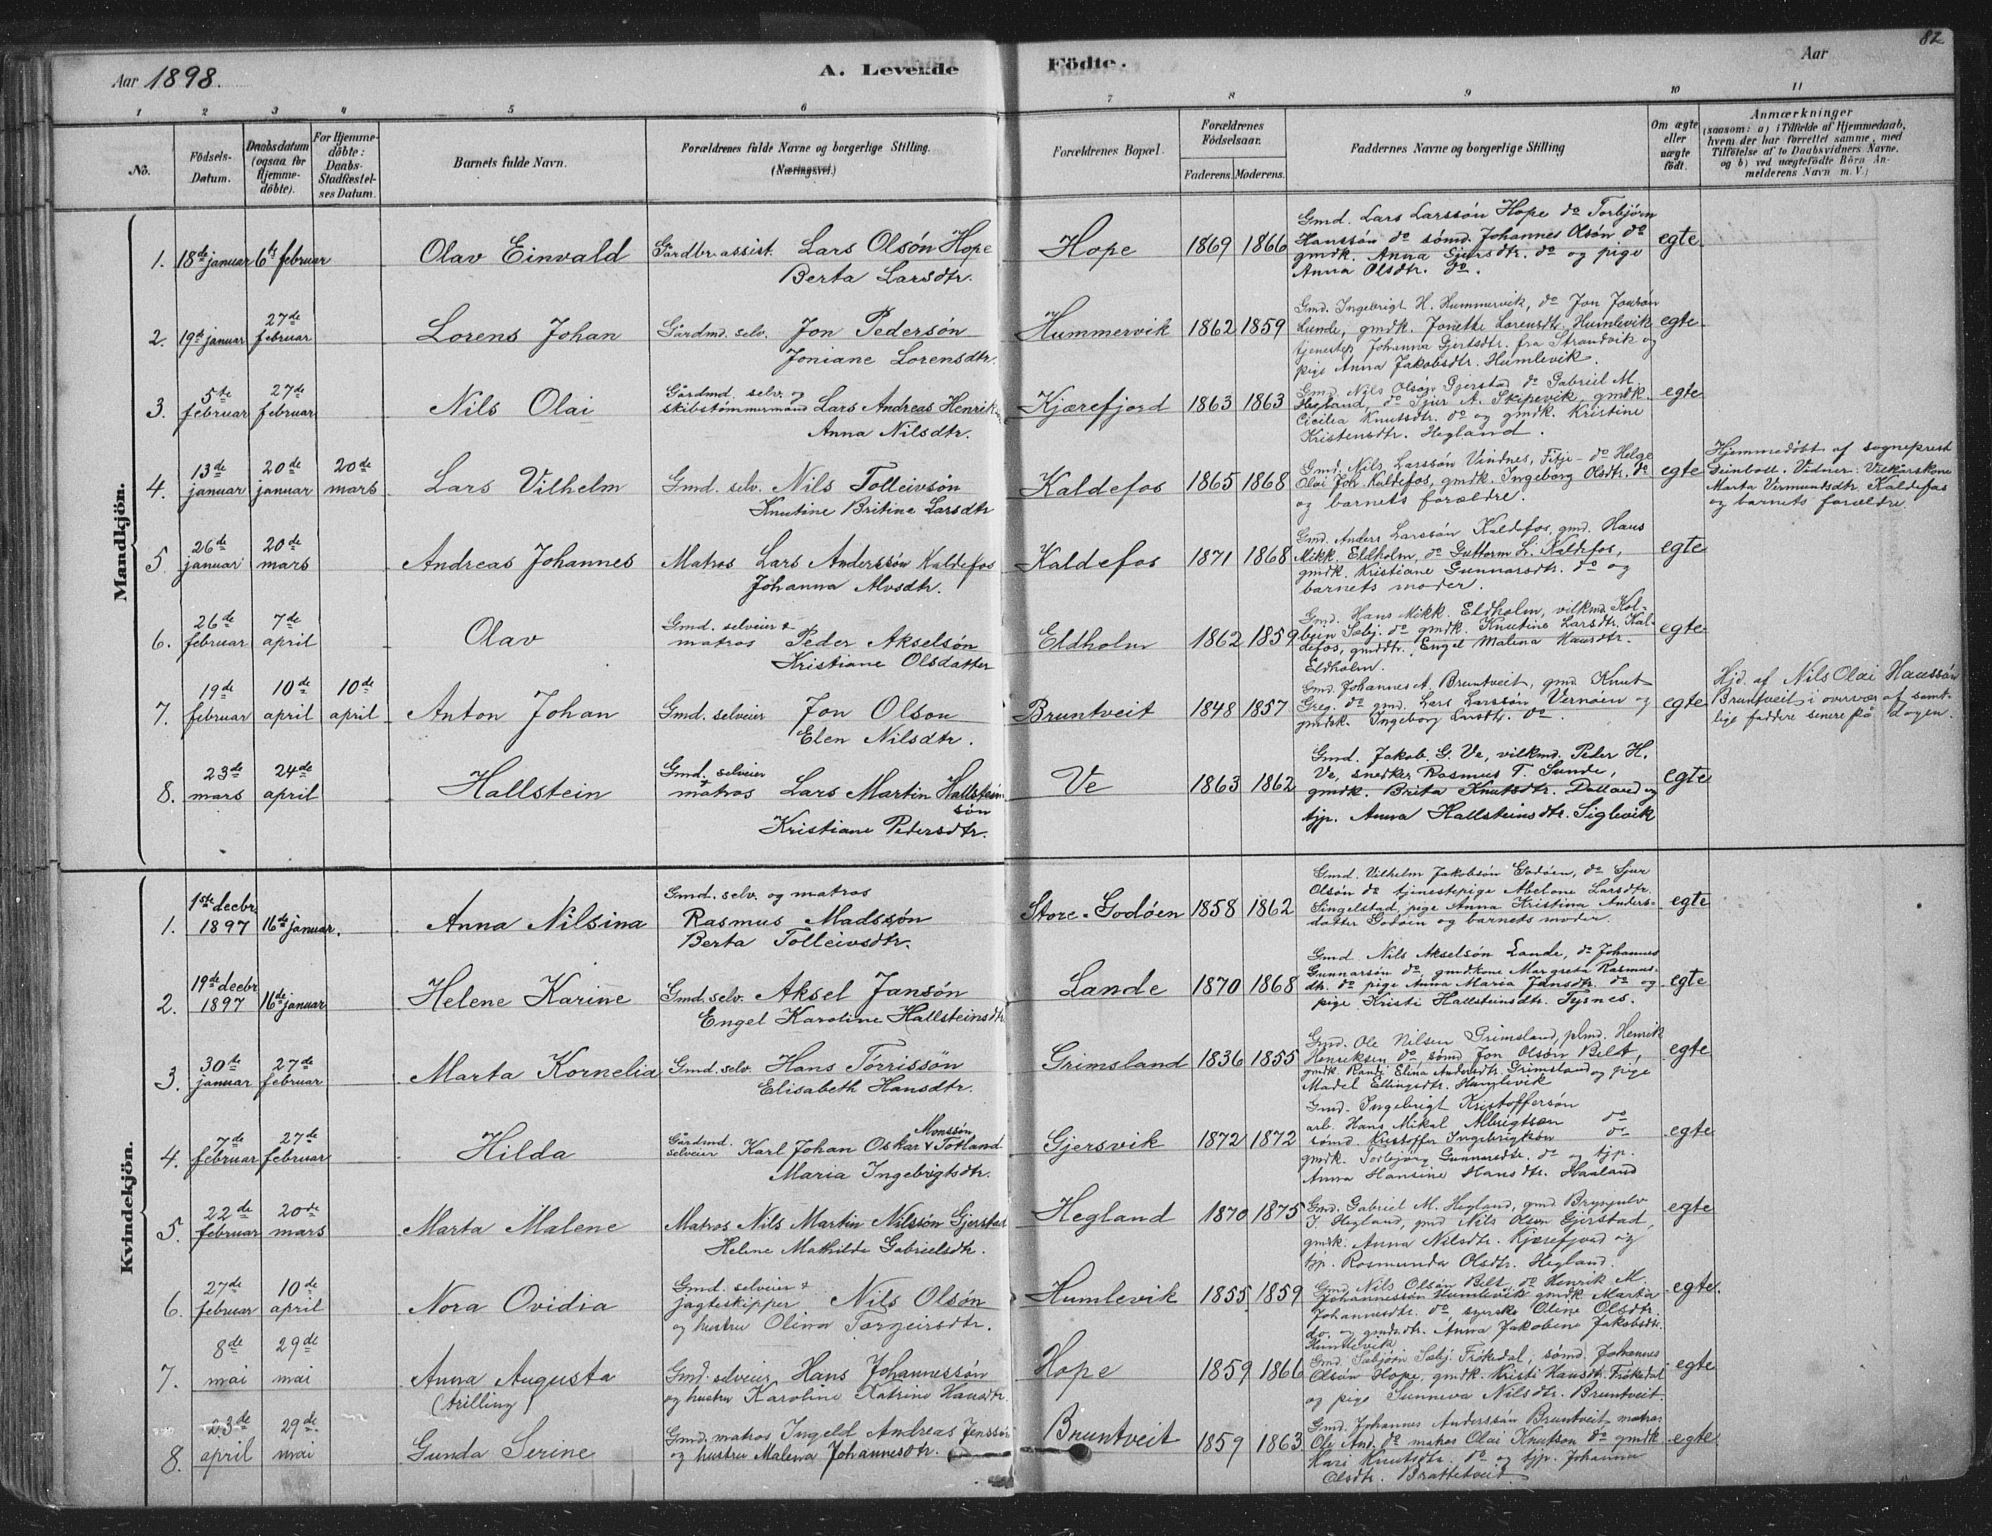 82
Aar 1898.
A. Levende Födte.
Aar
1 2 3 4 5 6 7 8 9 10 11
No.
Födsels-Datum.
Daabsdatum (ogsaa for Hjemmedöbte).
For Hjemmedöbte: Daabs-Stadfæstelses Datum.
Barnets fulde Navn.
Forældrenes fulde Navne og borgerlige Stilling. (Næringsvei.)
Forældrenes Bopæl.
Forældrenes Födselsaar.
Faderens. Moderens.
Faddernes Navne og borgerlige Stilling
Om ægte eller uægte födt.
Anmærkninger
(saasom: a) i Tilfælde af Hjemmedaab, hvem der har forrettet samme, med Tilföielse af to Daabsvidners Navne, og b) ved uægtefödte Börn Anmelderens Navn m. V.)
Mandkjön.
1. 18de januar 6te februar Olav Einvald Gårdbr. assist. Lars Olsön Hope
Berta Larsdtr. Hope 1869 1866
Gmd. Lars Larssön Hope do Torbjörn
Hanssön do sömd. Johannes Olsön do
gmdk. Anna Gjersdtr. do og pige
Anna Olsdtr. do.
egte
2. 19de januar 27de februar Lorens Johan Gårdmd. selv. Jon Pedersön
Joniane Lorensdtr. Hummervik 1862 1859
Gmd. Ingebrigt H. Hummervik, do Jon Jonsön
Lunde, gmdk. Jonette Lorensdtr. Humlevik
tjenestep. Johanna Gjertsdtr. fra Strandvik og
pige Anna Jakobsdtr. Humlevik.
egte
3. 5te februar 27de februar Nils Olai Gårdmd. selv. og
skibstömmermand Lars Andreas Henriks
Anna Nilsdtr. Kjærefjord 1863 1863
Gmd. Nils Olsön Gjerstad do Gabriel M.
Hegland, do Sjur A. Skipevik, gmdk.
Cicilia Knutsdtr. do og gmdk. Kristine
Kristensdtr. Hegland.
egte
4. 13de januar 20de januar 20de mars Lars Vilhelm Gmd. selv. Nils Tolleivsön
Knutine Britine Larsdtr Kaldefos 1865 1868
Gmd. Nils Larssön Vindnes, Fitje - do Helge
Olai Jon. Kaldefos, gmdk. Ingeborg Olsdtr. do
og barnets forældre.
egte
Hjemmedöbt af sogneprest
Deinboll. Vidner: Vilkårskone
Marta Vermundsdtr Kaldefos
og barnets forældre.
5. 26de januar 20de mars Andreas Johannes Matros Lars Anderssön Kaldefos
Johanna Alvsdtr. Kaldefos 1871 1868
Gmd. Anders Larssön Kaldefos, gmd. Hans
Mikk. Eldholm, do Guttorm L. Kaldefos,
gmdk. Kristiane Gunnarsdtr. do og
barnets moder.
egte
6. 26de februar 7de april Olav Gmd. selveier &
matros Peder Akselsön
Kristiane Olsdatter Eldholm 1862 1859
Gmd. Hans Mikk. Eldholm, vilkmd. Kol-
bein Sæbj. do gmdk. Knutine Larsdtr. Kal-
defos, gmddtr. Engel Malena Hansdtr.
Eldholm.
egte
7. 19de februar 10de april 10de april Anton Johan Gmd. selveier Jon Olson
Elen Nilsdtr. Bruntveit 1848 1857
Gmd. Johannes A. Bruntveit, gmd. Knut
Greg. do gmd. Lars Larssön Vernöen og
gmdk. Ingeborg Larsdtr. do
egte
Hjd. af Nils Olai Hanssön
Bruntveit i overvær af samt-
lige faddere senere på dagen.
8. 23de mars 24de april Hallstein Gmd. selveier
+ matros Lars Martin Hallstein
sön
Kristiane Pedersdtr. Ve 1863 1862
Gmd. Jakob G. Ve, vilkmd. Peder H.
Ve, snedker Rasmus T. Sunde,
gmdk. Brita Knutsdtr. Dalland og
tjp. Anna Hallsteinsdtr. Siglevik
egte
Kvindekjön.
1. 1ste decbr. 1897 16de januar. Anna Nilsina Gmd. selv. og matros
Rasmus Madssön
Berta Tolleivsdtr. Store-Godöen 1858 1862
Gmd. Vilhelm Jakobsön Godöen, do Sjur
Olsön do tjenestepige Abelone Larsdtr.
Singelstad, pige Anna Kristina Anders-
datter Godöen og barnets moder.
egte
2. 19de decbr 1897 16de januar Helene Karine Gmd. selv. Aksel Jansön
Engel Karoline Hallsteinsdtr Lande 1870 1868
Gmd. Nils Akselsön Lande, do Johannes
Gunnarsön do, gmdkone Margreta Rasmus-
dtr. do pige Anna Maria Jansdtr. do og
pige Kristi Hallsteinsdtr. Tysnes.
egte
3. 30te januar 27de februar Marta Kornelia Gmd. selv. Hans Törrissön
Elisabeth Hansdtr. Grimsland 1836 1855
Gmd. Ole Nilsen Grimsland, plmd. Henrik
Henriksen do, sömd Jon Olsön Belt,
gmdk. Randi Elina Andersdtr. Grimsland og pige
Madel Ellingsdtr. Humlevik
egte
4. 7de februar 27de februar Hilda Gårdmd. selveier Karl Johan Oskar Monssön Totland
Maria Ingebrigtsdtr. Gjersvik 1872 1872
Gmd. Ingebrigt Kristoffersön
arb. Hans Mikal Albrigtsen do
sömd. Kristoffer Ingebrigtsön do
gmdk. Torbjörg Gunnarsdtr. do og tjp.
Anna Hansine Hansdtr. Haaland
egte
5. 22de februar 20de mars Marta Malene Matros Nils Martin Nilssön Gjerstad
Helene Mathilde Gabrielsdtr. Hegland 1870 1875
Gmd. Gabriel M. Hegland, gmd Brynjulv
J. Hegland, gmd Nils Olson Gjerstad,
gmdk. Anna Nilsdtr. Kjærefjord og
tjp. Rosmunda Olsdtr. Hegland.
egte
6. 27de februar 10de april Nora Ovidia Gmd. selveier &
jagteskipper. Nils Olsön
og hustru Olina Torgeirsdtr. Humlevik 1855 1859
Gmd. Nils Olsön Belt, do Henrik M.
Johannessön Humlevik gmdk Marta
Johannesdtr. do syerske Oline Olsdtr.
do. og gmdsdtr. Anna Jakobine Jakobsdtr.
Humlevik
egte.
7. 8de mai 29de mai Anna Augusta
(trilling) Gmd. selveier Hans Johannessön
og hustru Karoline Katrine Hansdtr Hope 1859 1866
Gmd. Sæbjörn Sæbj. Trökedal, sömd. Johannes
Olsön Hope, gmdk. Kristi Hansdtr. Trökedal
og pige Sunneva Nilsdtr. Bruntveit.
egte
8. 23de april 29de mai Gunda Serine Gmd. matros Ingeld Andreas Jenssön
og hustru Malena Johannesdtr. Bruntveit 1859 1863
Gmd. Johannes Anderssön Bruntveit matros
Ole And. do matros Olai Knutson do gmdk
Kari Knutsdtr. do og tjp. Johanna
Olsdtr. Brattetveit.
egte